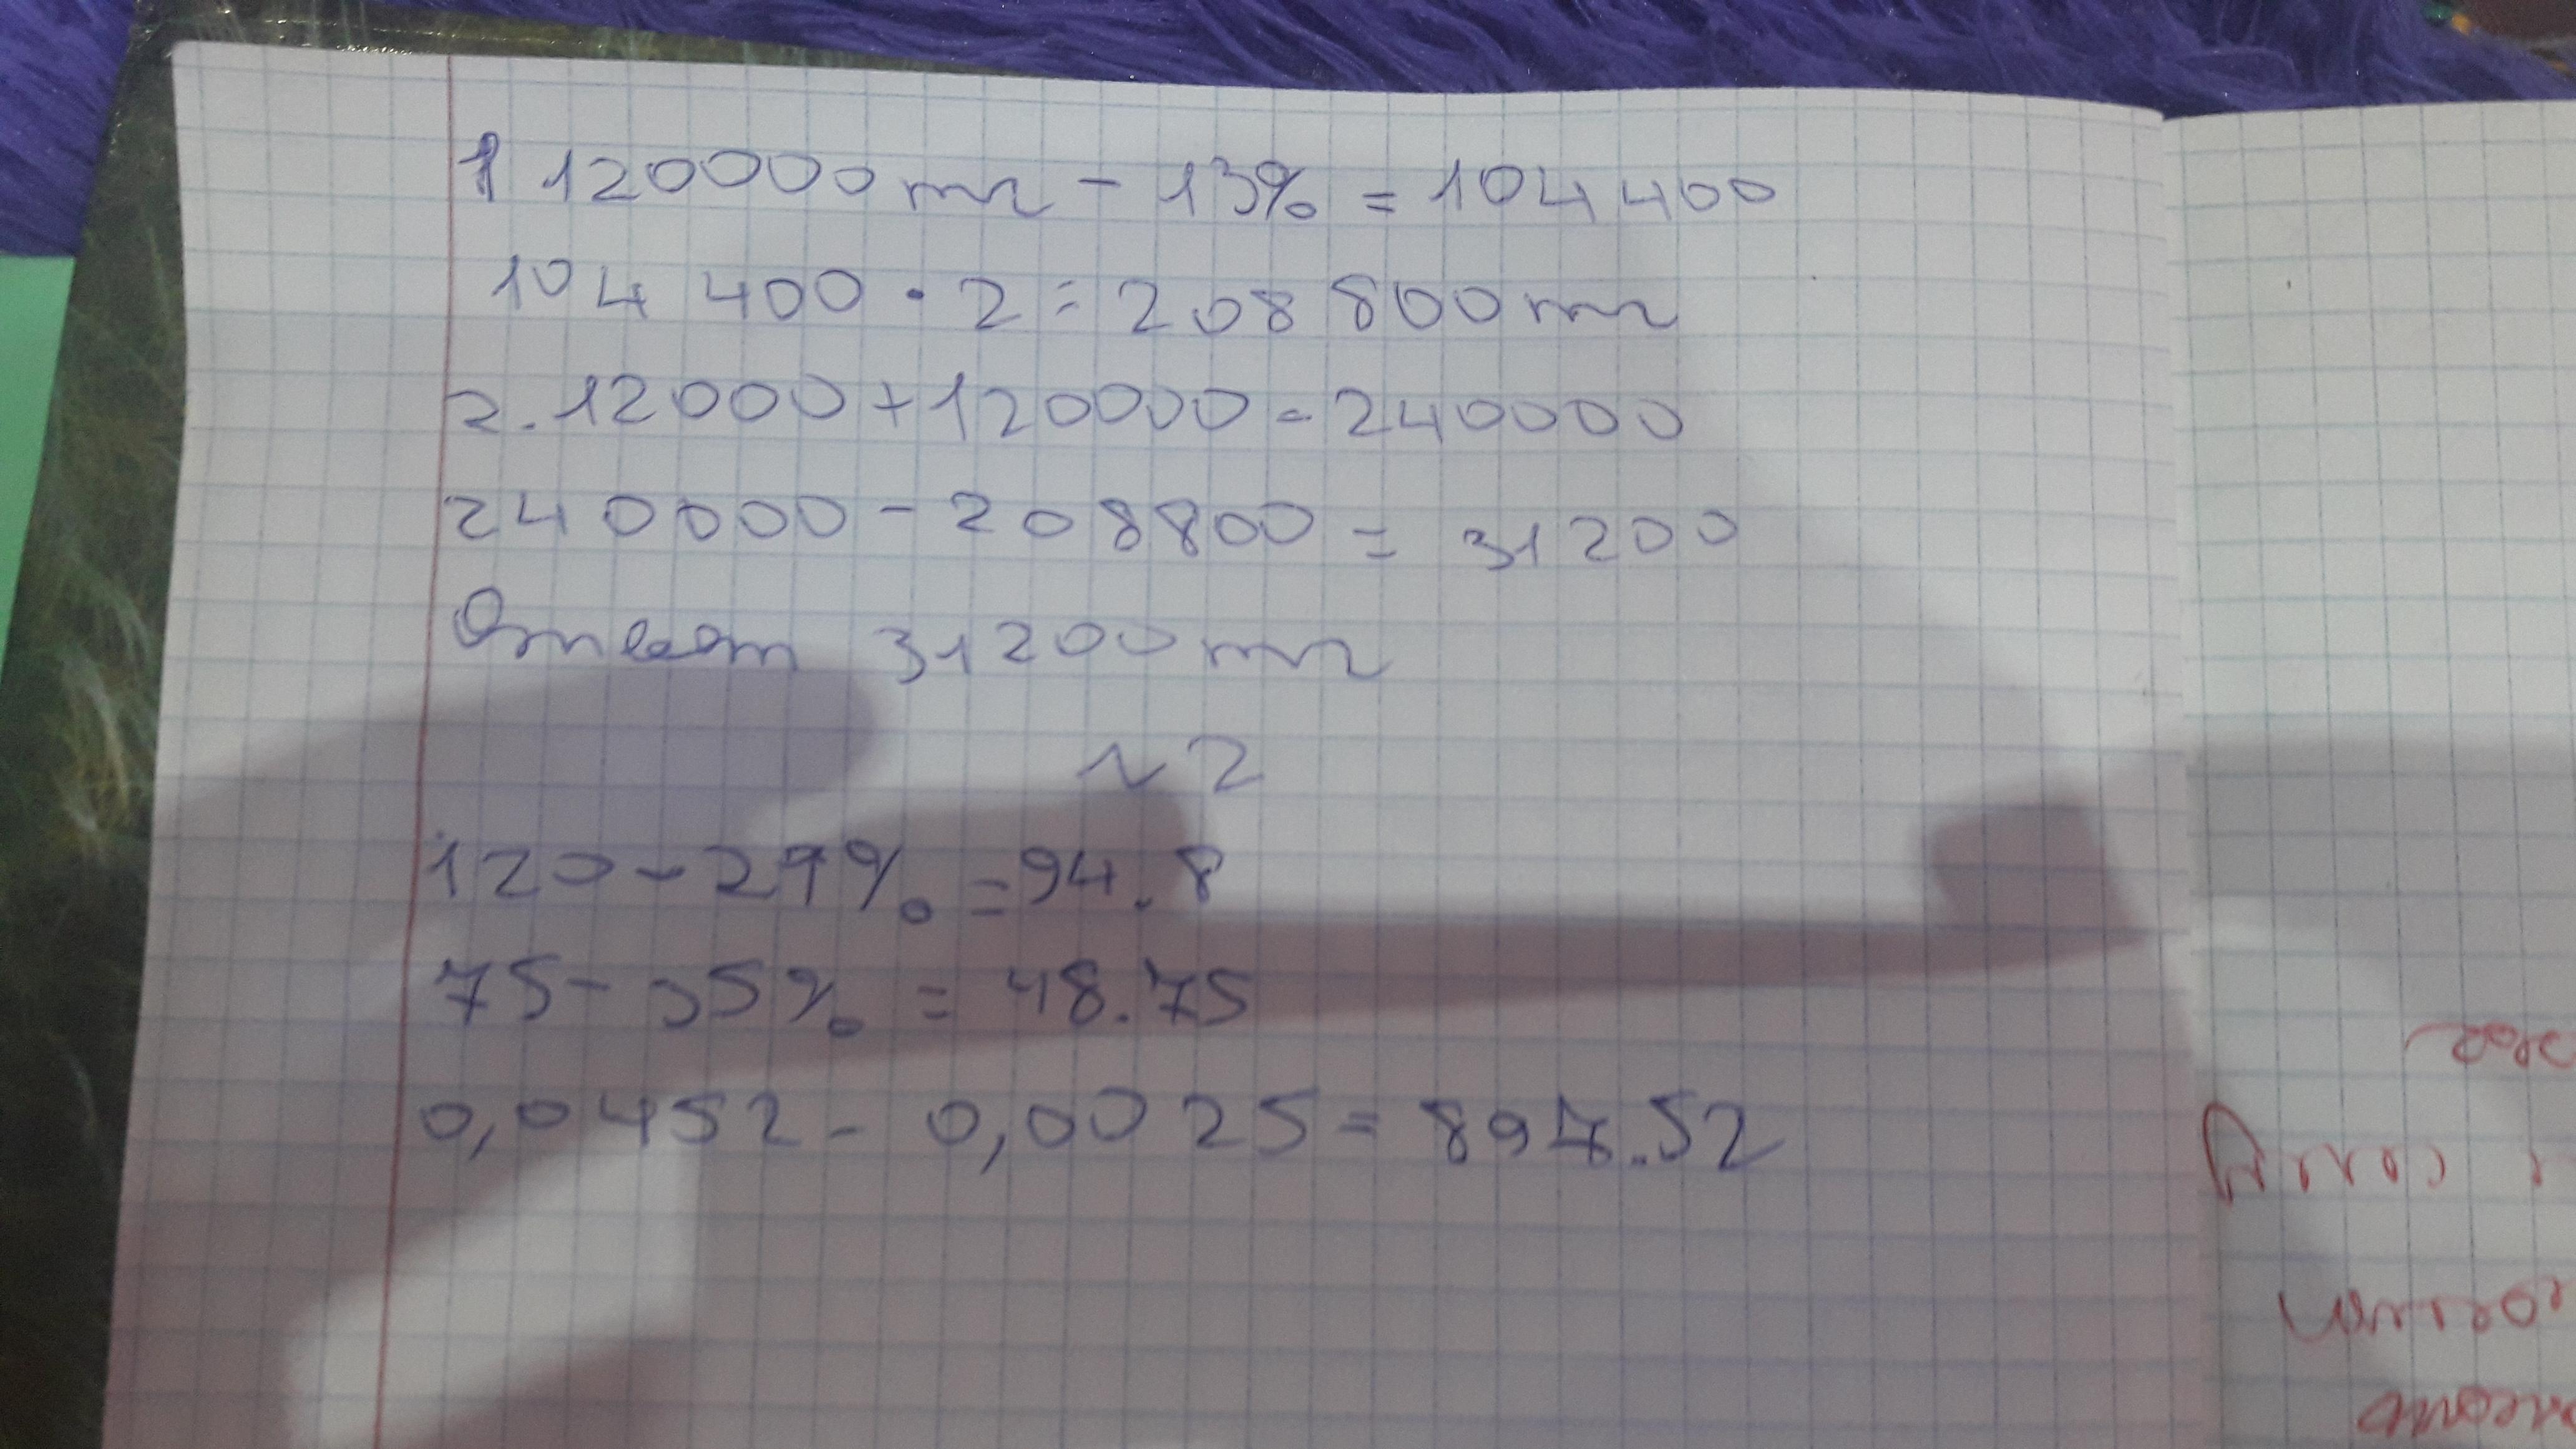 1 120000 тг - 13% = 104400
104 400 · 2 = 208 800 тг
2. 12000 + 120000 = 240000
240000 - 208800 = 31200
Ответ 31200 тг
№ 2
120 - 29% = 94.8
75 - 35% = 48.75
0,0452 - 0,0025 = 897.52